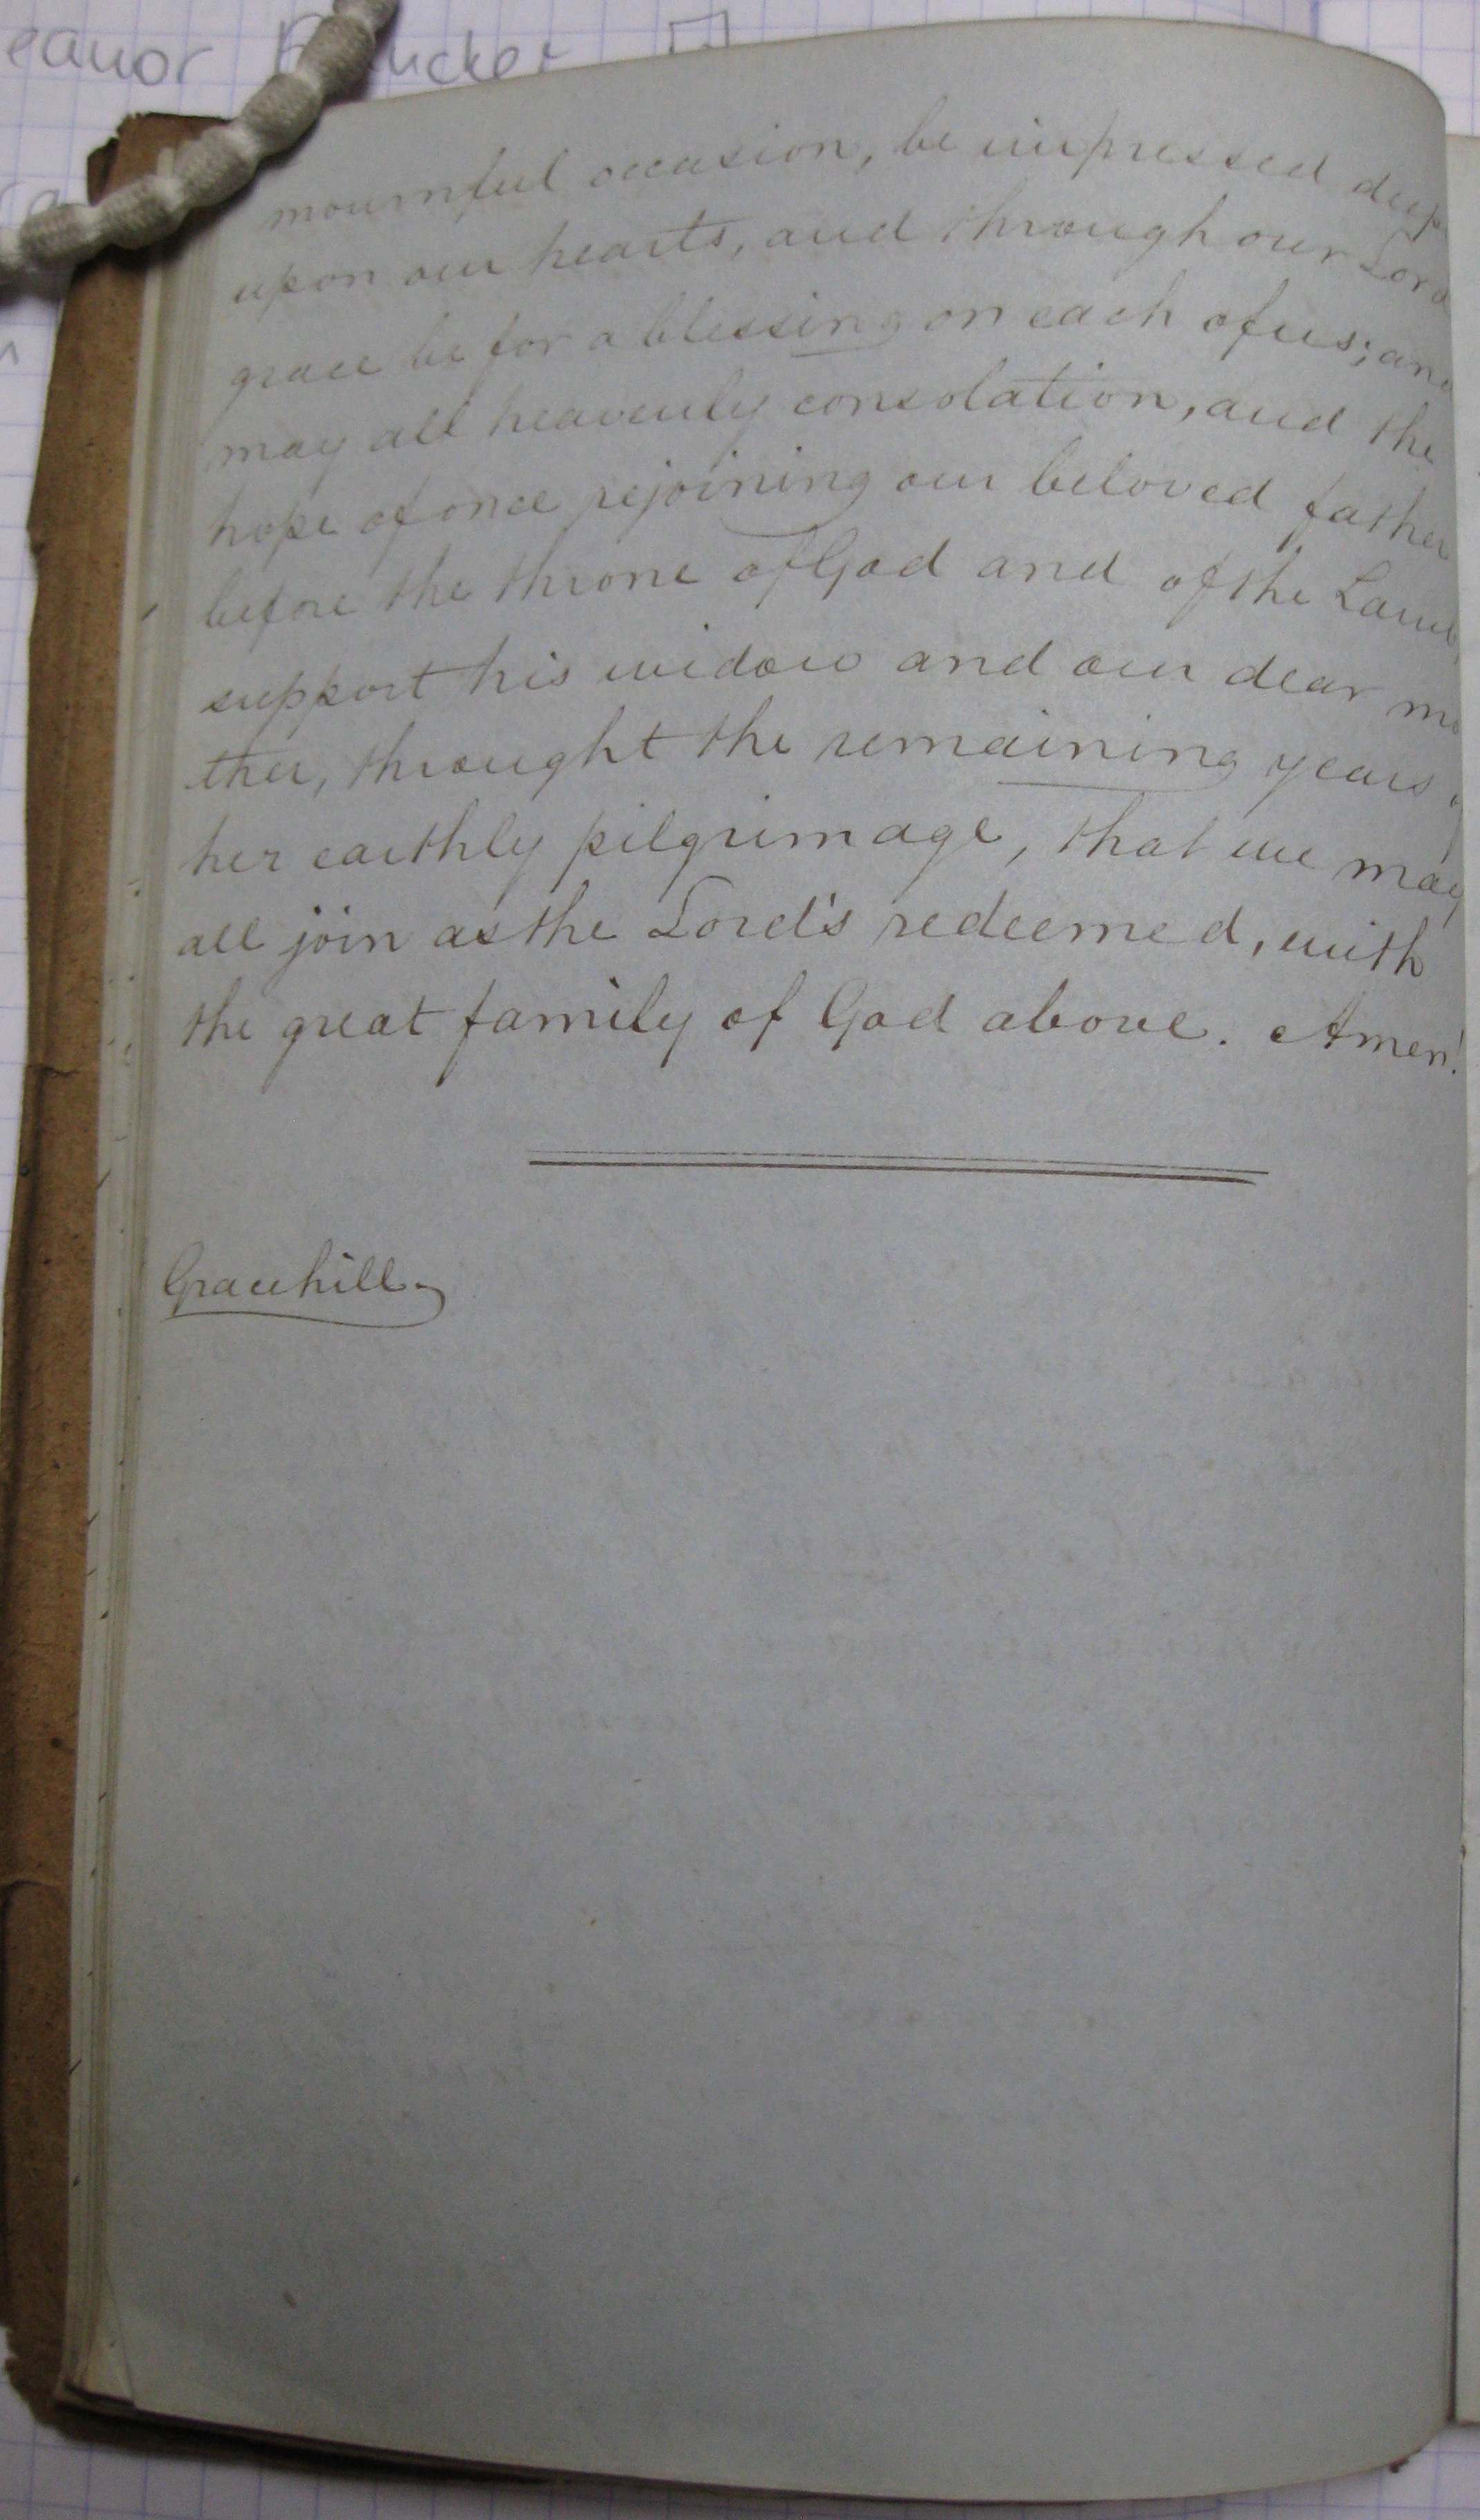 eanor
mournful occasion, be impressed deep
upon our hearts, and through our Lord
grace be for a blessing on each of us; and
may all heavenly consolation, and the
hope of once rejoining our beloved father
before the throne of God and of the Lamb,
support his widow and our dear mo
ther, throught the remaining years of
her earthly pilgrimage, that we may
all join as the Lord's redeemed, with
the great family of God above. Amen!
Gracehill